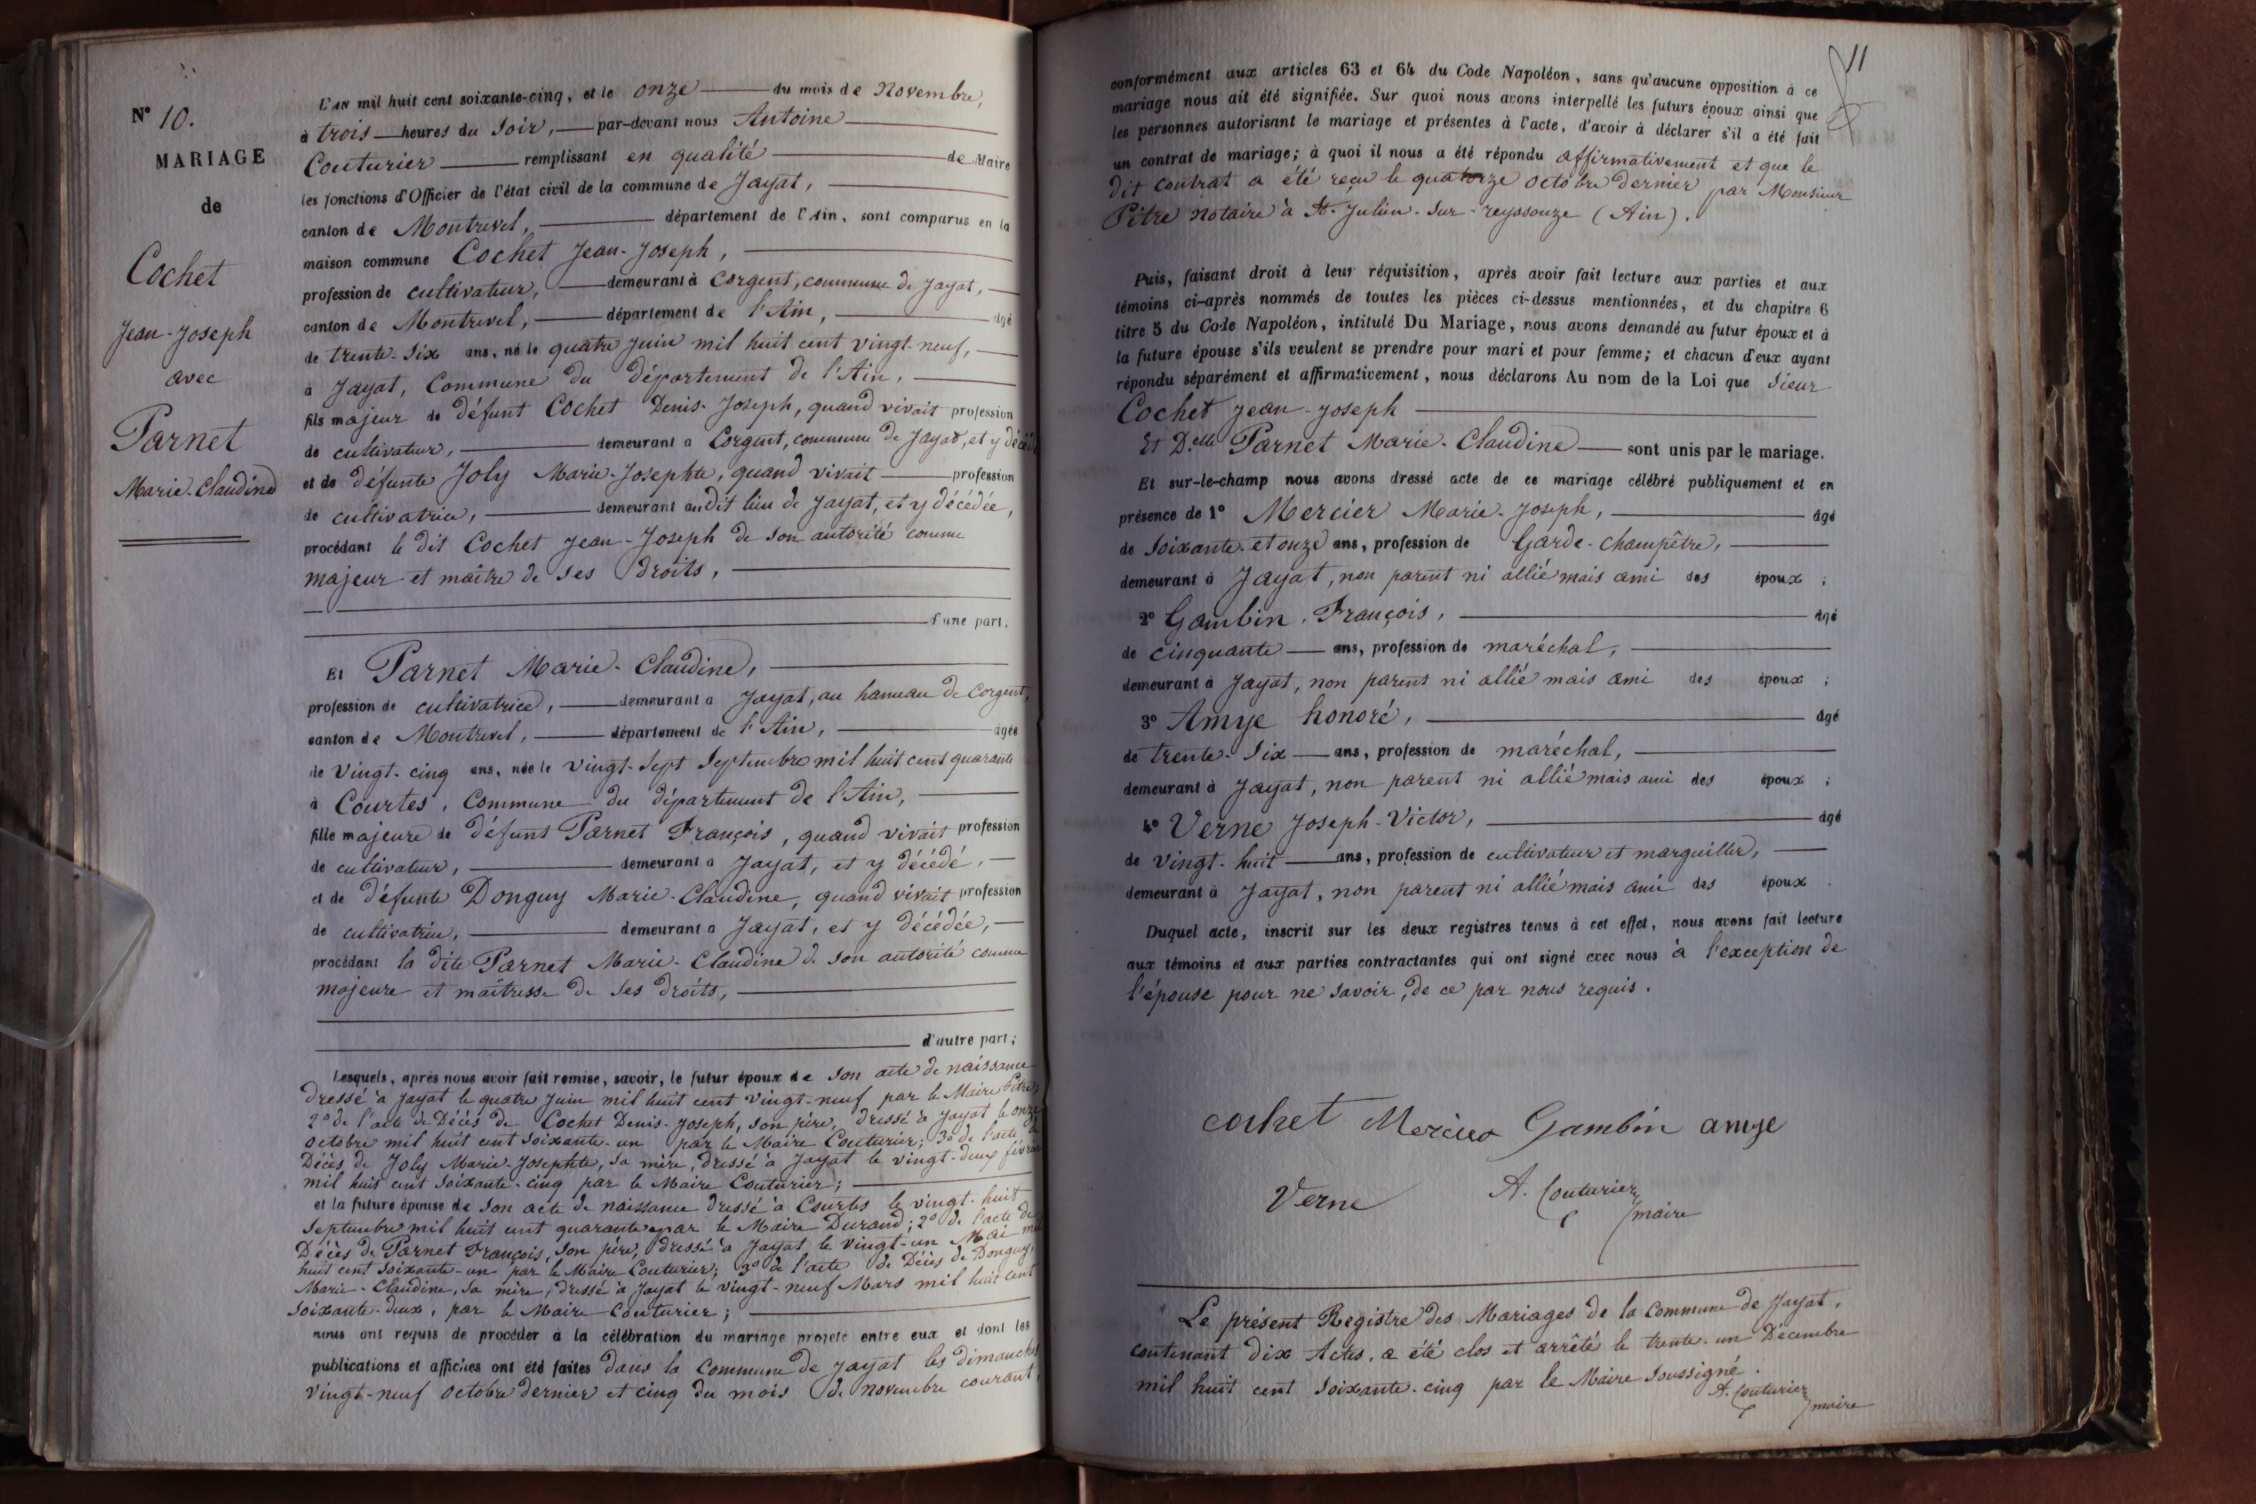 N° 10.
MARIAGE
de
Cochet
Jean-Joseph
avec
Parnet
Marie-Claudine
L'AN mil huit cent soixante-cinq, et le onze du mois de Novembre,
à trois heures du Soir, par-devant nous Antoine
Couturier remplissant en qualité de Maire
les fonctions d'Officier de l'état civil de la commune de Jayat,
canton de Montrevel, département de l'Ain, sont comparus en la
maison commune Cochet Jean-Joseph,
profession de cultivateur, demeurant à Corgent, commune de Jayat,
canton de Montrevel, département de l'Ain, âgé
de trente-six ans, né le quatre juin mil huit cent vingt-neuf,
à Jayat, Commune du département de l'Ain,
fils majeur de défunt Cochet Denis-Joseph, quand vivait profession
de cultivateur, demeurant à Corgent, commune de Jayat, et y décédé
et de défunte Joly Marie-Josephte, quand vivait profession
de cultivatrice, demeurant audit lieu de Jayat, et y décédée,
procédant le dit Cochet Jean-Joseph de son autorité comme
majeur et maître de ses droits,
d'une part.
Et Parnet Marie-Claudine,
profession de cultivatrice, demeurant à Jayat, au hameau de Corgent,
canton de Montrevel, département de l'Ain, âgée
de vingt-cinq ans, née le vingt-sept Septembre mil huit cent quarante
à Courtes, Commune du département de l'Ain,
fille majeure de défunt Parnet François, quand vivait profession
de cultivateur, demeurant à Jayat, et y décédé,
et de défunte Donguy Marie-Claudine, quand vivait profession
de cultivatrice, demeurant à Jayat, et y décédée,
procédant la dite Parnet Marie-Claudine de son autorité comme
majeure et maîtresse de ses droits,
d'autre part;
Lesquels, après nous avoir fait remise, savoir, le futur époux de son acte de naissance
dressé à Jayat le quatre Juin mil huit cent vingt-neuf par le Maire Pitre;
2° de l'acte de Décès de Cochet Denis-Joseph, son père, dressé à Jayat le onze
octobre mil huit cent soixante-un par le Maire Couturier; 3° de l'acte de
Décès de Joly Marie-Josephte, sa mère, dressé à Jayat le vingt-deux février
mil huit cent soixante-cinq par le Maire Couturier;
et la future épouse de son acte de naissance dressé à Courtes le vingt-huit
Septembre mil huit cent quarante par le Maire Durand; 2° de l'acte de
Décès de Parnet François, son père, dressé à Jayat le vingt-un Mai mil
huit cent soixante-un par le Maire Couturier; 3° de l'acte de Décès de Donguy,
Marie-Claudine, sa mère, dressé à Jayat le vingt-neuf Mars mil huit cent
soixante-deux, par le Maire Couturier;
nous ont requis de procéder à la célébration du mariage projeté entre eux et dont les
publications et affiches ont été faites dans la Commune de Jayat les dimanches
vingt-neuf octobre dernier et cinq du mois de novembre courant,
11
conformément aux articles 63 et 64 du Code Napoléon, sans qu'aucune opposition à ce
mariage nous ait été signifiée. Sur quoi nous avons interpellé les futurs époux ainsi que
les personnes autorisant le mariage et présentes à l'acte, d'avoir à déclarer s'il a été fait
un contrat de mariage; à quoi il nous a été répondu affirmativement et que le
dit contrat a été reçu le quatorze octobre dernier par Monsieur
Pitre notaire à St-Julien-sur-reyssouze (Ain).
Puis, faisant droit à leur réquisition, après avoir fait lecture aux parties et aux
témoins ci-après nommés de toutes les pièces ci-dessus mentionnées, et du chapitre 6
titre 5 du Code Napoléon, intitulé Du Mariage, nous avons demandé au futur époux et à
la future épouse s'ils veulent se prendre pour mari et pour femme; et chacun d'eux ayant
répondu séparément et affirmativement, nous déclarons Au nom de la Loi que Sieur
Cochet Jean-Joseph
Et Delle Parnet Marie-Claudine sont unis par le mariage.
Et sur-le-champ nous avons dressé acte de ce mariage célébré publiquement et en
présence de 1° Mercier Marie-Joseph, âgé
de soixante-et onze ans, profession de Garde-champêtre,
demeurant à Jayat, non parent ni allié mais ami des époux;
2° Gambin François, âgé
de cinquante ans, profession de maréchal,
demeurant à Jayat, non parent ni allié mais ami des époux;
3° Amye honoré, âgé
de trente-six ans, profession de maréchal,
demeurant à Jayat, non parent ni allié mais ami des époux;
4° Verne Joseph-Victor, âgé
de vingt-huit ans, profession de cultivateur et marguiller,
demeurant à Jayat, non parent ni allié mais ami des époux.
Duquel acte, inscrit sur les deux registres tenus à cet effet, nous avons fait lecture
aux témoins et aux parties contractantes qui ont signé avec nous à l'exception de
l'épouse pour ne savoir, de ce par nous requis.
cochet Mercier Gambin amye
Verne A. Couturier
maire
Le présent Registre des Mariages de la Commune de Jayat,
contenant dix Actes, a été clos et arrêté le trente-un Décembre
mil huit cent soixante-cinq par le Maire soussigné.
A. Couturier
maire